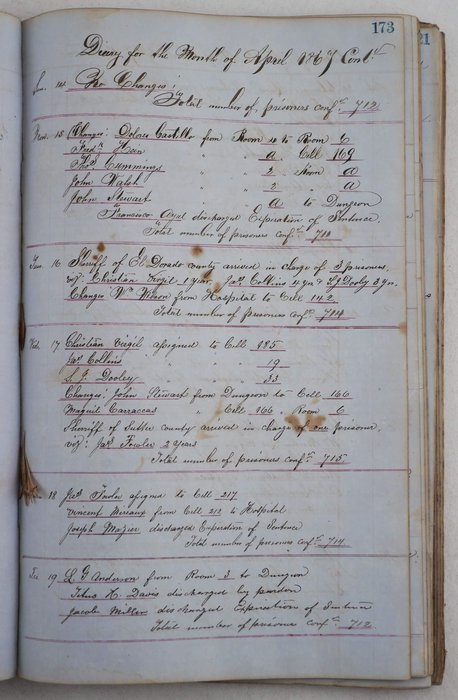 173
21
Diary for the Month of April 1867 Cont.d
Sun. 14 No Changes:
Total number of prisoners conf.d 712
Mon. 15 Changes: Dolores Castillo from Room 4 to Room 6
Fred.k " " a " Cell 169
Tho.s Cummings " " 2 " Room a
John Walsh " " 2 " a
John Stewart " " a to Dungeon
Francisco discharged Expiration of Sentence
Total number of prisoners conf.d 711
Tues. 16 Sheriff of El Dorado county arrived in charge of 3 prisoners,
viz: Christian Virgil 1 year, Ja.s Collins 4 yrs & S. J. Dooley 3 yrs.
Changes W.m Wilson from Hospital to Cell 142
Total number of prisoners conf.d 714
Wed. 17 Christian Virgil assigned to Cell 495
Ja.s Collins " " " 19
S. J. Dooley " " " 33
Changes: John Stewart from Dungeon to Cell 166
Carraccas " Cell 166 " Room 6
Sherriff of Sutter county arrived in charge of one prisoner,
viz: Ja.s Fowler 2 years
Total number of prisoners conf.d 715
18 Ja.s Fowler assigned to Cell 217
Vincent from Cell 212 to Hospital
Joseph Mazier discharged Expiration of Sentence
Total number of prisoners conf.d 714
Fri 19 L G Anderson from Room 3 to Dungeon
Titus H. Davis discharged by pardon
Jacob Miller discharged Expiration of Sentence
Total number of prisoners conf.d 712